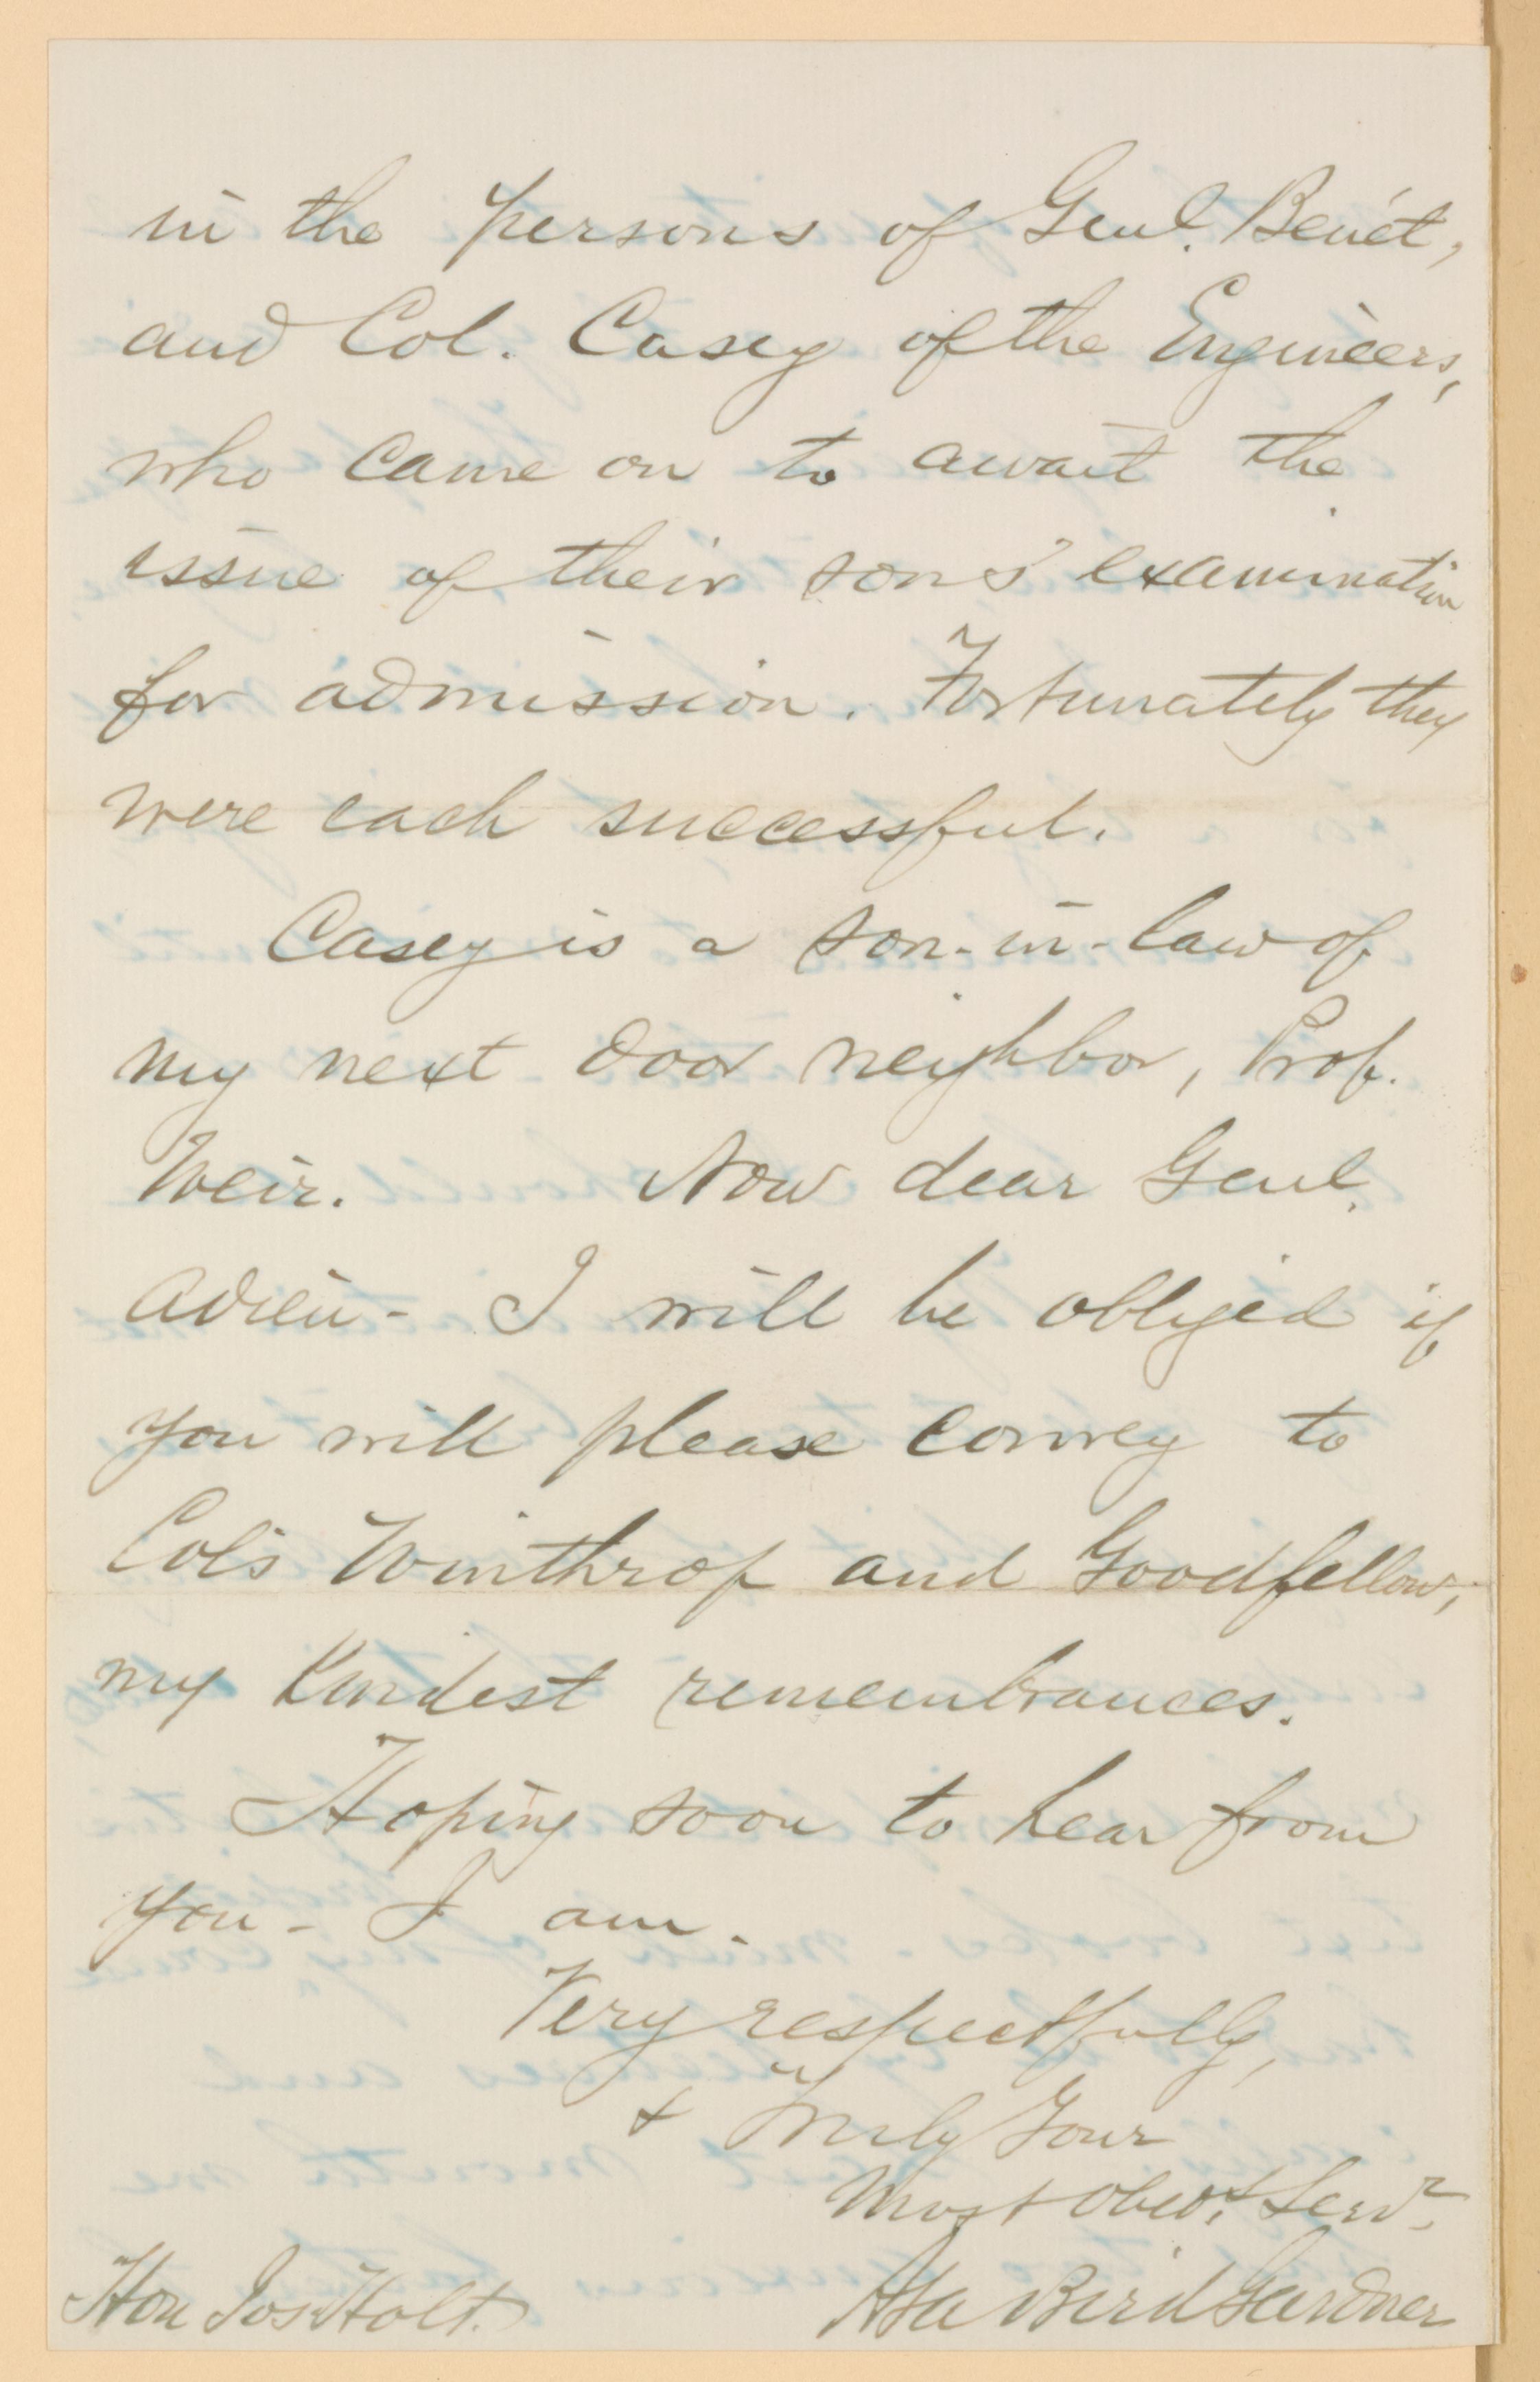 in the persons of Genl. Benét,
and Col. Casey of the Engineers,
who came on to await the
issue of their sons' examination
for admission. Fortunately they
were each successful.
Casey is a son-in-law of
my next door neighbor, Prof.
Weir. Now dear Genl.
adieu - I will be obliged if
you will please convey to
Cols Winthrop and Goodfellow,
my kindest remembrances.
Hoping soon to hear from
you - I am.
Very respectfully,
& Truly Your
Most Obedt. Servt.
Asa Bird Gardner
Hon Jos Holt.